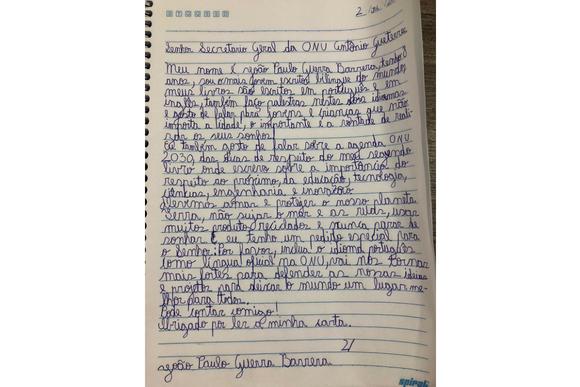 Senhor Secretario Geral da ONU António Guterres
Meu nome é João Paulo Guerra Barrera, tenho 8
anos, sou o mais jovem escritor bilíngue do mundo,
meus livros são escritos em português e em
inglês, também faço palestras nestes dois idiomas
e gosto de falar para jovens e crianças que não
importa a idade, o importante é a vontade de reali-
zar os seus sonhos.
Eu também gosto de falar sobre a agenda ONU
2030, das dicas de respeito do meu segundo
livro onde escrevo sobre a importância do
respeito ao próximo, da educação, tecnologia,
ciências, engenharia e inovação.
Devemos amar e proteger o nosso planeta
Terra, não sujar o mar e as ruas, usar
muitos produtos reciclados e nunca parar de
sonhar e eu tenho um pedido especial para
o Senhor: Por favor, inclua o idioma português
como língua oficial na ONU, vai nos tornar
mais fortes para defender as nossas ideias
e projetos para deixar o mundo um lugar me-
lhor para todos.
Pode contar comigo!
Obrigado por ler a minha carta.
João Paulo Guerra Barrera
spiral